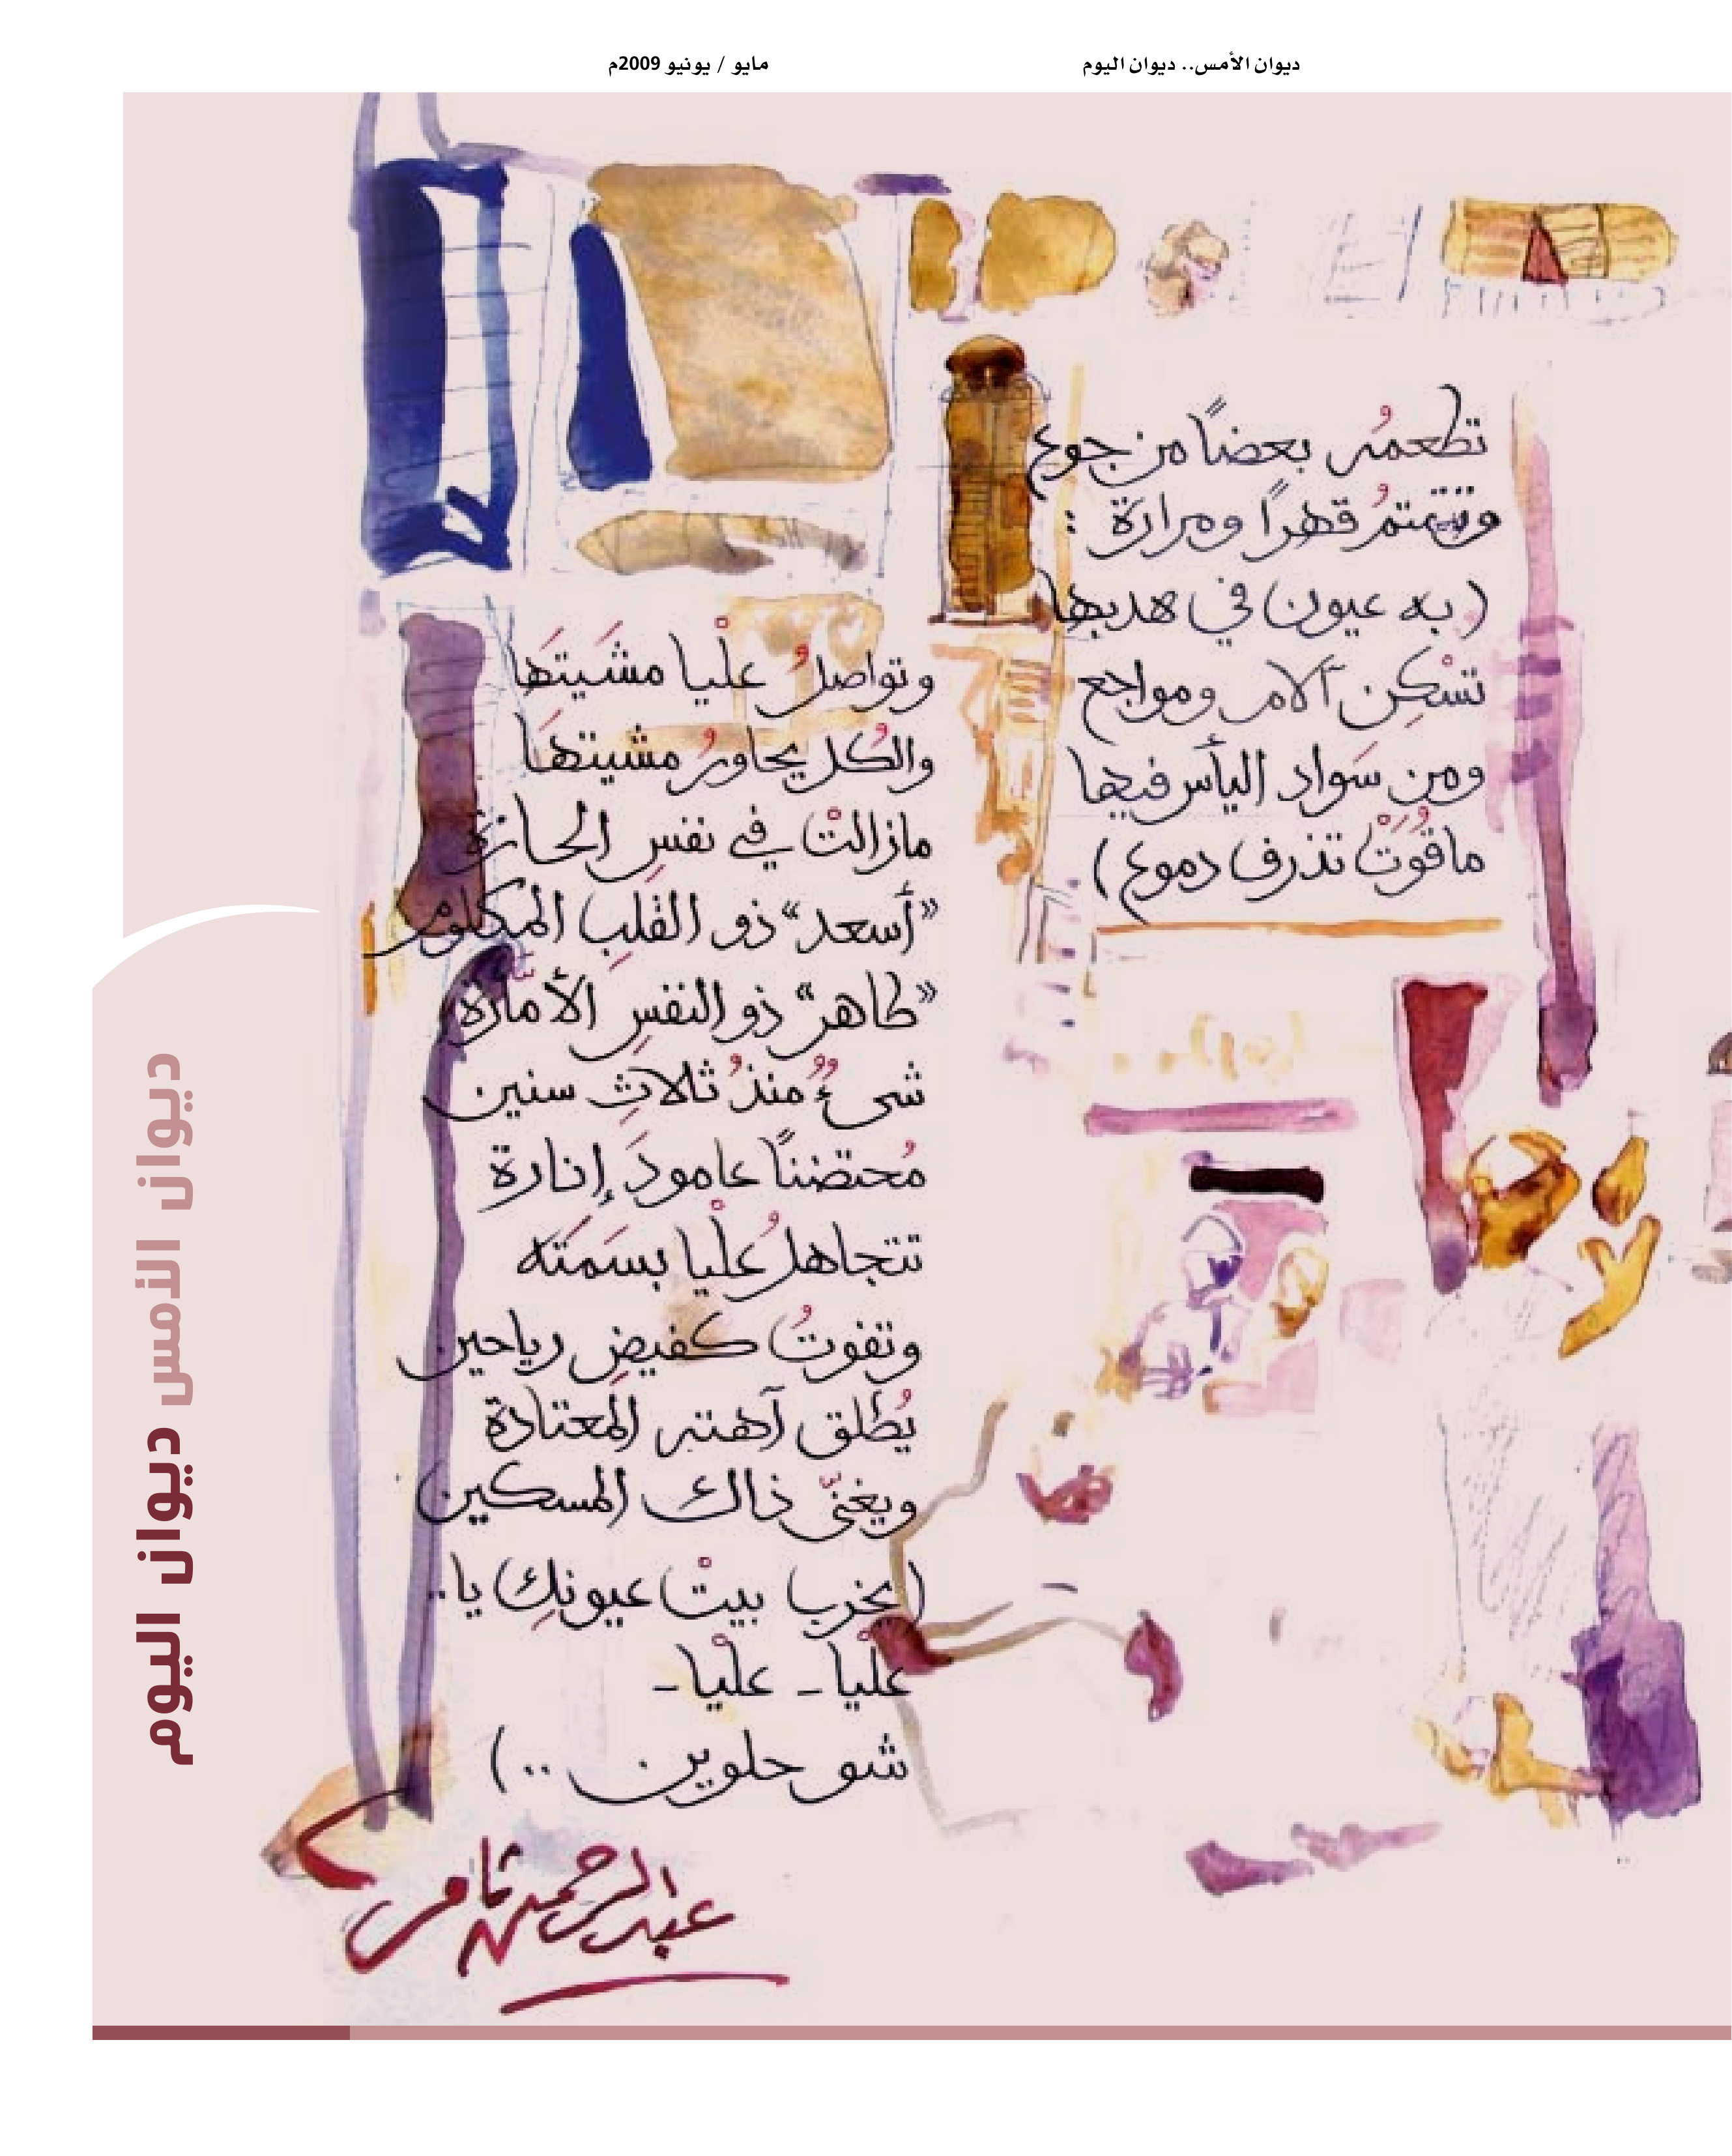 ديوان الأمس.. ديوان اليوم
مايو / يونيو 2009م
تطعمُه بعضاً من جوع
وتتمتمُ قهراً ومرارة :
(به عيون في هدبها
تسْكِن آلام ومواجع
ومن سَواد اليأس فيها
ماقُوَتْ تذرف دموع)
وتواصلُ علْيا مشَيتَها
والكُل يحاورُ مشيتهَا
مازالتْ في نفسِ الحارَة
«أسعد» ذو القلبِ المكلوم
«طاهر» ذو النفسِ الأمّارة
شىءٌ منذُ ثلاثِ سنين
مُحتضناً عامودَ إنارة
تتجاهلُ علْيا بسَمتَه
وتفوتُ كفيضِ رياحين
يُطلق آهته المعتادة
ويغنّى ذاك المسكين
(يخرب بيتْ عيونكِ يا..
علْيا - علْيا -
شو حلوين ..)
عبدالرحمن ثامر
ديوان الأمس ديوان اليوم